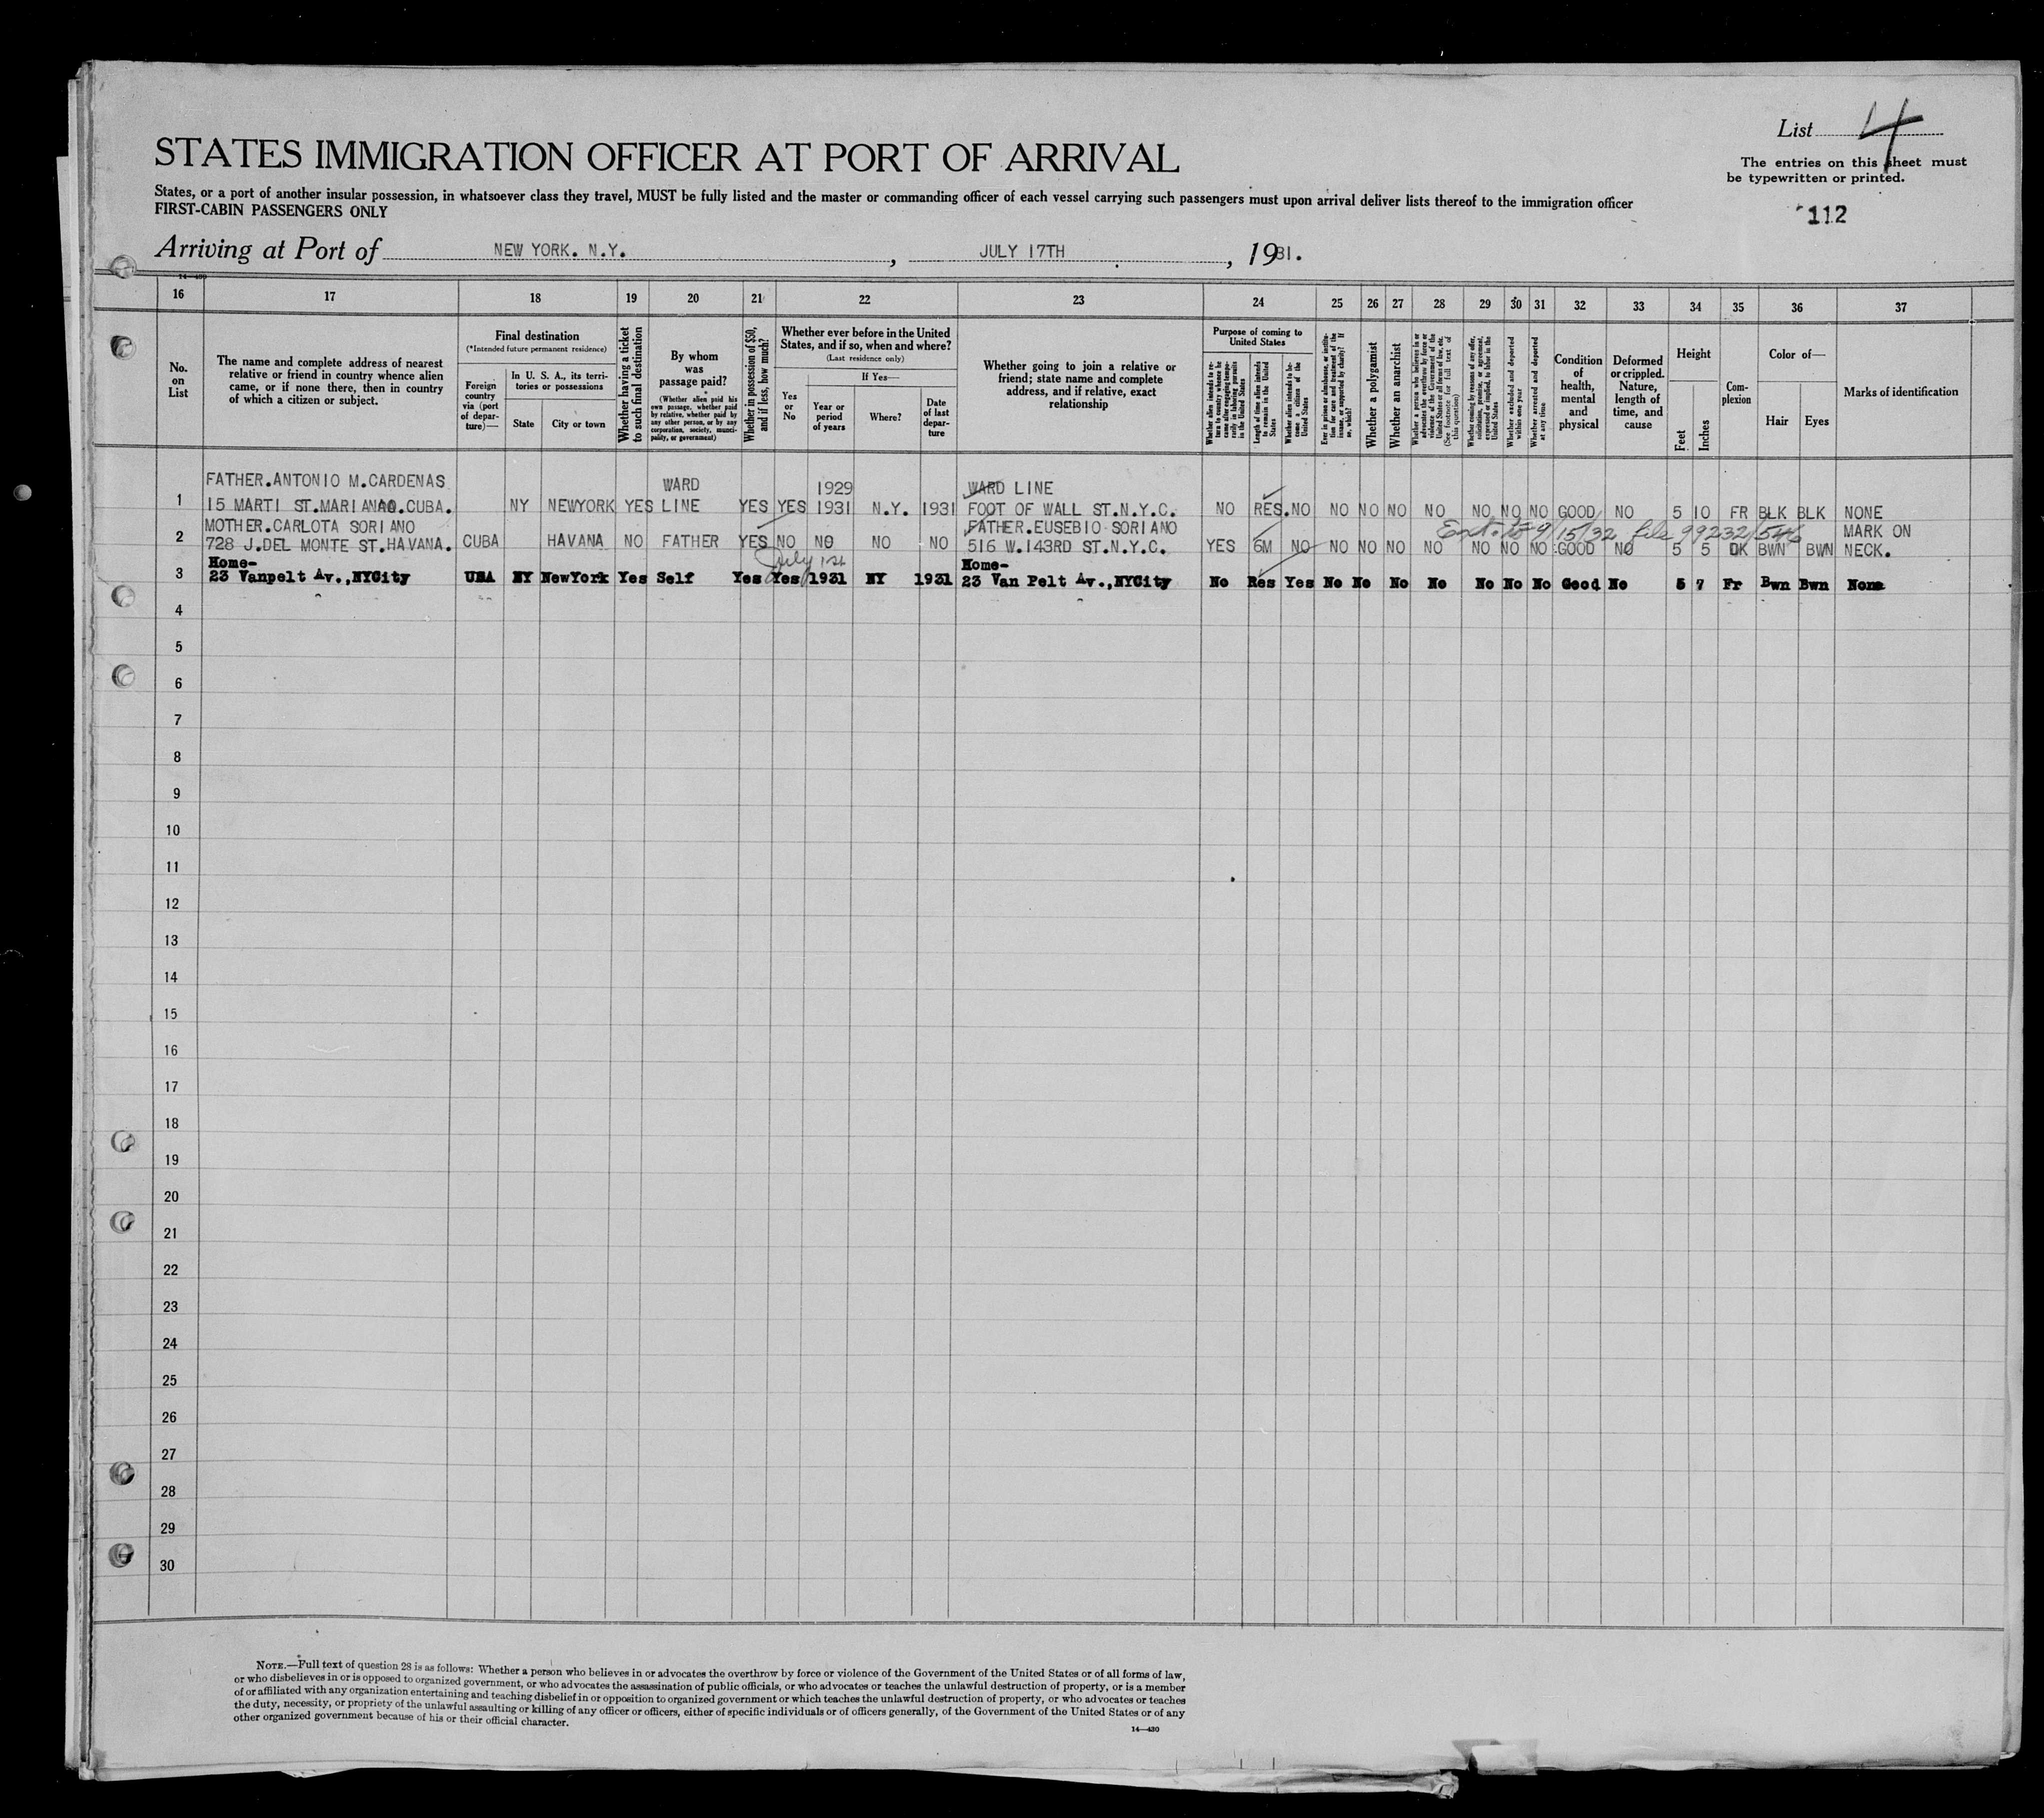 List 4
STATES IMMIGRATION OFFICER AT PORT OF ARRIVAL
The entries on this sheet must
be typewritten or printed.
States, or a port of another insular possession, in whatsoever class they travel, MUST be fully listed and the master or commanding officer of each vessel carrying such passengers must upon arrival deliver lists thereof to the immigration officer
FIRST-CABIN PASSENGERS ONLY
112
Arriving at Port of NEW YORK. N.Y. , JULY 17TH , 1931.
14—430
16 17 18 19 20 21 22 23 24 25 26 27 28 29 30 31 32 33 34 35 36 37
No. on List
The name and complete address of nearest relative or friend in country whence alien came, or if none there, then in country of which a citizen or subject.
Final destination
(*Intended future permanent residence)
Foreign country via (port of departure)—
In U. S. A., its territories or possessions
State
City or town
Whether having a ticket to such final destination
By whom was passage paid?
(Whether alien paid his own passage, whether paid by relative, whether paid by any other person, or by any corporation, society, municipality, or government)
Whether in possession of $50, and if less, how much?
Whether ever before in the United States, and if so, when and where?
(Last residence only)
Yes or No
If Yes—
Year or period of years
Where?
Date of last departure
Whether going to join a relative or friend; state name and complete address, and if relative, exact relationship
Purpose of coming to United States
Whether alien intends to return to country whence he came after engaging temporarily in laboring pursuits in the United States
Length of time alien intends to remain in the United States
Whether alien intends to become a citizen of the United States
Ever in prison or almshouse, or institution for care and treatment of the insane, or supported by charity? If so, which?
Whether a polygamist
Whether an anarchist
Whether a person who believes in or advocates the overthrow by force or violence of the Government of the United States or all forms of law, etc. (See footnote for full text of this question)
Whether coming by reason of any offer, solicitation, promise, or agreement, expressed or implied, to labor in the United States
Whether excluded and deported within one year
Whether arrested and deported at any time
Condition of health, mental and physical
Deformed or crippled. Nature, length of time, and cause
Height
Feet
Inches
Complexion
Color of—
Hair
Eyes
Marks of identification
FATHER.ANTONIO M.CARDENAS WARD 1929 WARD LINE
1 15 MARTI ST.MARIANAO.CUBA. NY NEWYORK YES LINE YES YES 1931 N.Y. 1931 FOOT OF WALL ST.N.Y.C. NO RES. NO NO NO NO NO NO NO NO GOOD NO 5 10 FR BLK BLK NONE
MOTHER.CARLOTA SORIANO FATHER.EUSEBIO SORIANO Ext. to 9/15/32 file 99232/546 MARK ON
2 728 J.DEL MONTE ST.HAVANA. CUBA HAVANA NO FATHER YES NO NO NO NO 516 W.143RD ST.N.Y.C. YES 6M NO NO NO NO NO NO NO NO GOOD NO 5 5 DK BWN BWN NECK.
Home- July 1st Home-
3 23 Vanpelt Av.,NYCity USA NY NewYork Yes Self Yes Yes 1931 NY 1931 23 Van Pelt Av.,NYCity No Res Yes No No No No No No No Good No 5 7 Fr Bwn Bwn None
4
5
6
7
8
9
10
11
12
13
14
15
16
17
18
19
20
21
22
23
24
25
26
27
28
29
30
NOTE.—Full text of question 28 is as follows: Whether a person who believes in or advocates the overthrow by force or violence of the Government of the United States or of all forms of law,
or who disbelieves in or is opposed to organized government, or who advocates the assassination of public officials, or who advocates or teaches the unlawful destruction of property, or is a member
of or affiliated with any organization entertaining and teaching disbelief in or opposition to organized government or which teaches the unlawful destruction of property, or who advocates or teaches
the duty, necessity, or propriety of the unlawful assaulting or killing of any officer or officers, either of specific individuals or of officers generally, of the Government of the United States or of any
other organized government because of his or their official character.
14—430